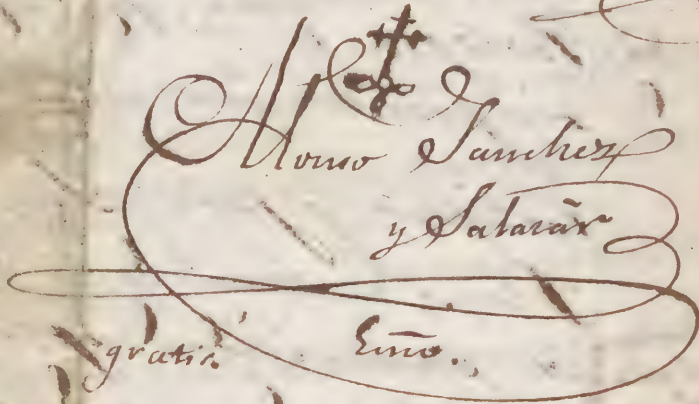 Alonso Sanchez
y Salazar
gratis. Srno.